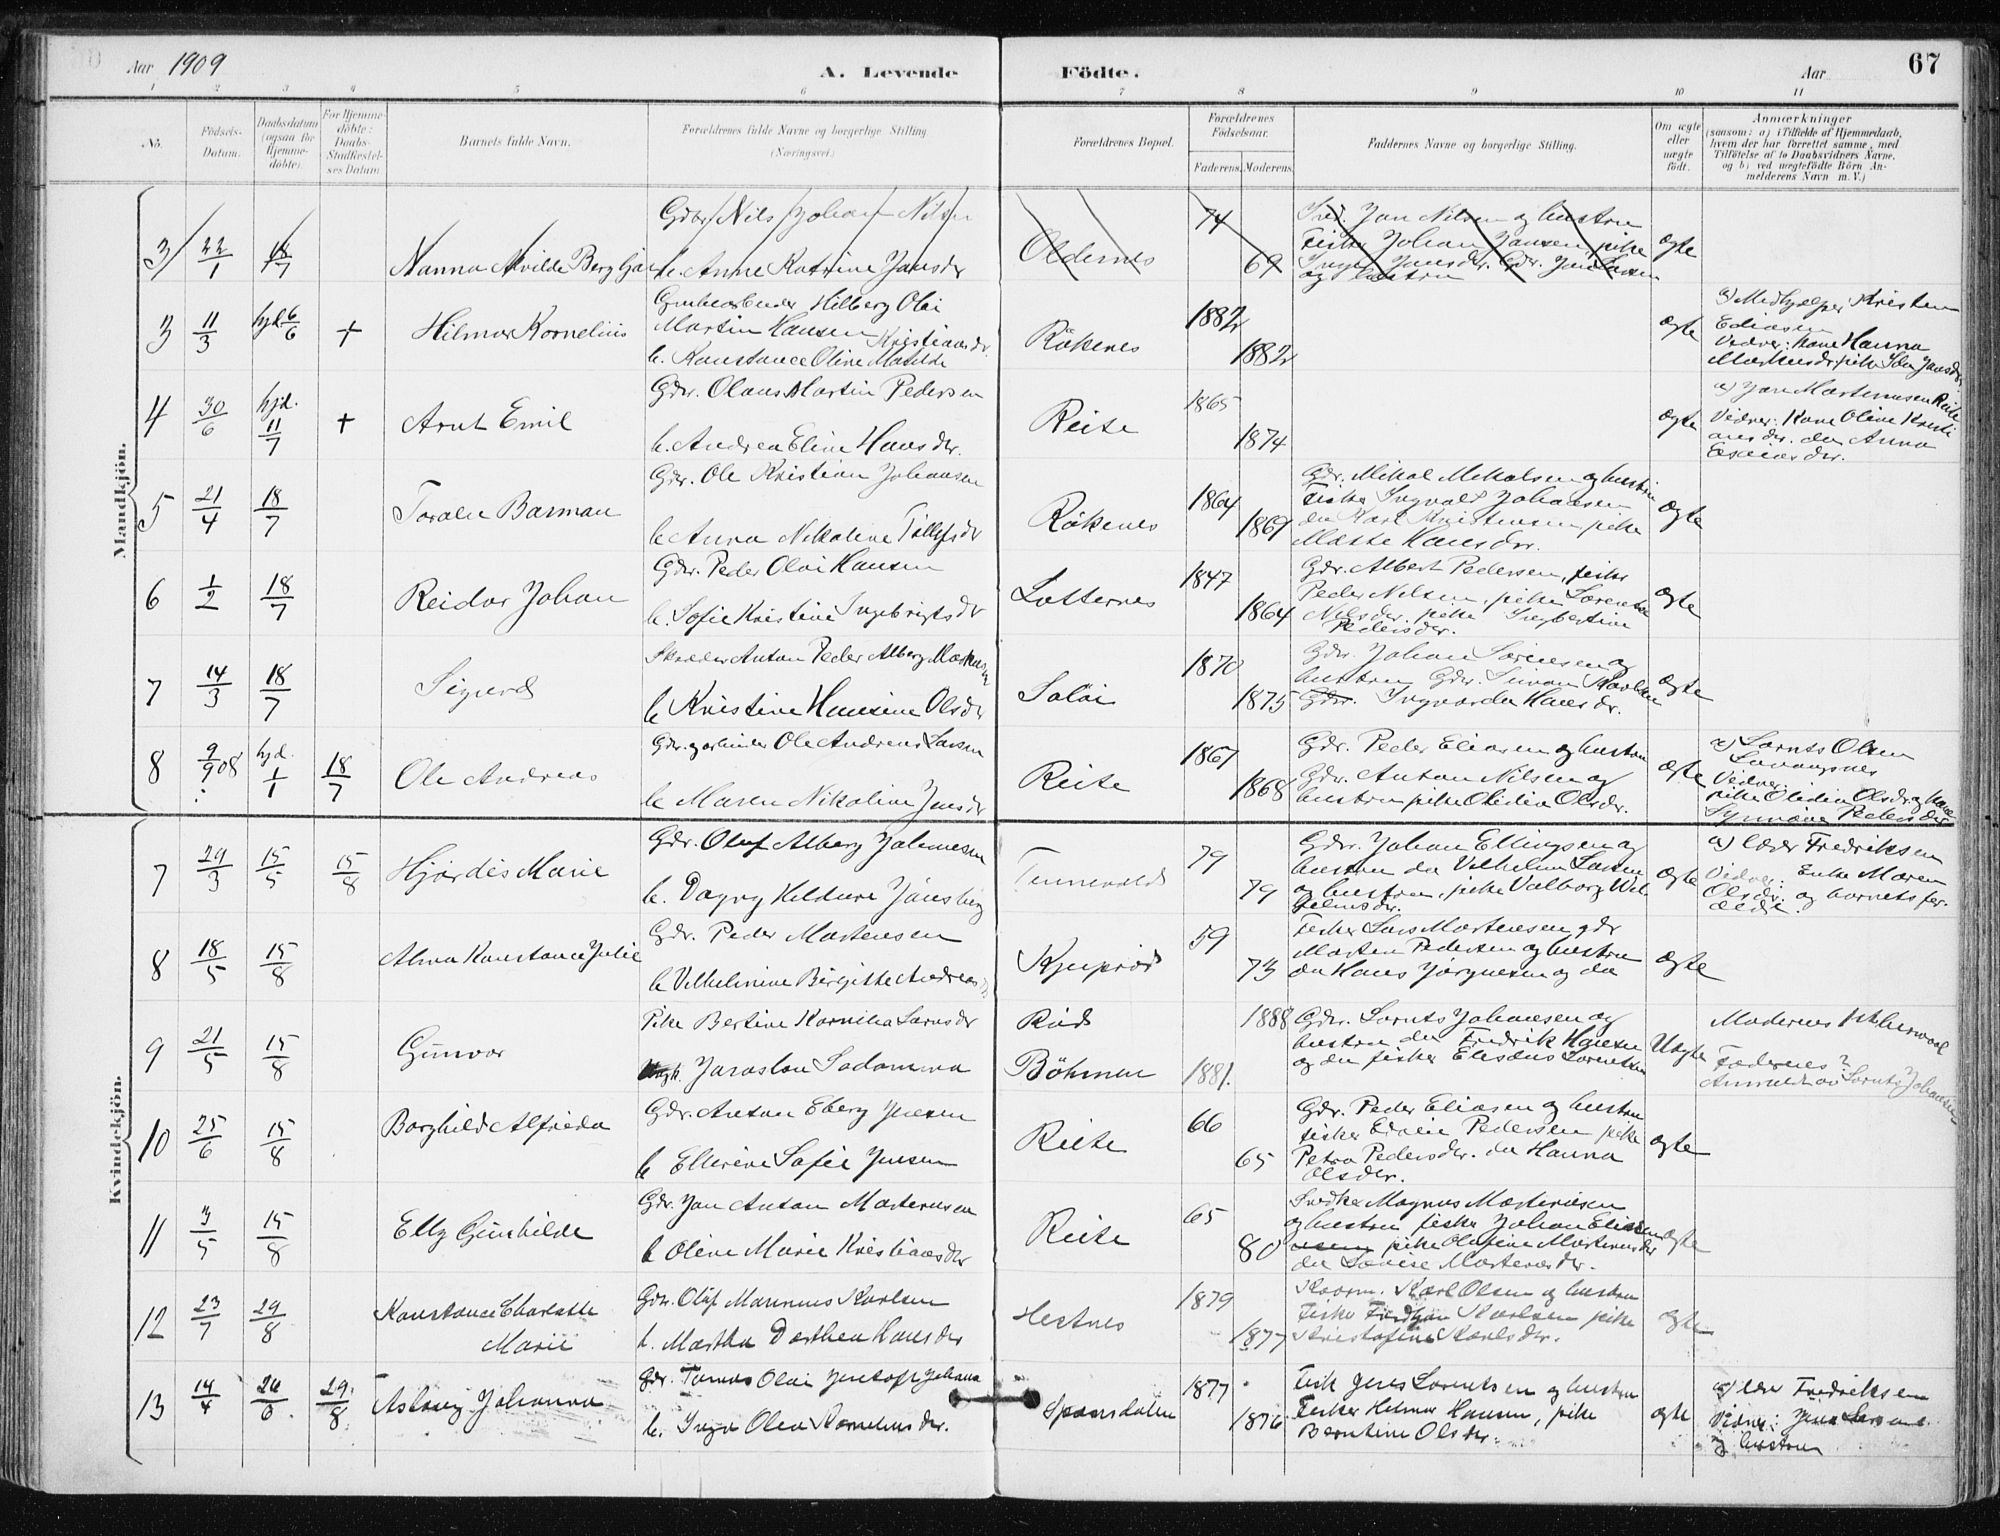 Aar 1909
A. Levende Födte.
Aar
67
1 2 3 4 5 6 7 8 9 10 11
No.
Födsels-Datum.
Daabsdatum (ogsaa for Hjemme-döbte).
For Hjemme-döbte: Daabs-Stadfæstel-ses Datum.
Barnets fulde Navn.
Forældrenes fulde Navne og borgerlige Stilling.
(Næringsvei.)
Forældrenes Bopæl.
Forældrenes Födselsaar.
Faderens. Moderens.
Faddernes Navne og borgerlige Stilling.
Om ægte eller uægte født.
Anmærkninger
(saasom: a) i Tilfælde af Hjemmedaab, hvem der har forrettet samme, med Tilføielse af to Daabsvidners Navne, og b) ved uægtefødte Börn An-melderens Navn m. V.)
Mandkjön.
3 22/1 18/7 Nanna Alvilde Bergljot
Gdbr. Nils Johan Nilsen
h. Anne Katrine Jansdr
Oldernes 74 69
Jan Nilsen og hustru
Fisker Johan Jansen pike
og hustru
ægte
3 11/3 hjd. 6/6 + Hilmar Kornelius
Grubearbeider Hilberg Olai
Martin Hansen
h. Konstance Olive Matilde Kristiansdr.
Rökenes 1882 1882 ægte
a) Medhjælper Kristen
Eliasen
Vidner: Kone Hanna
4 30/6 hjd. 11/7 + Arnt Emil
Gdr. Olaus Martin Pedersen
h. Andrea Eline Hansdr.
Reite 1865 1874 ægte
a) Jan Martinusen Reite
Vidner: Kone Olive Kristi
ansdr. do Anna
Esaiasdr.
5 21/4 18/7 Toralv Barman
Gdr. Ole Kristian Johansen
h. Anna Nikoline Tollefsdr
Rökenes 1864 1869
Gdr. Mikal Mikalsen og hustru
Fisker Ingvald Johansen
do Karl Kristensen pike
Hansdr.
ægte
6 1/2 18/7 Reidar Johan
Gdr. Peder Olai Hansen
h. Sofie Kristine Ingebrigtsdr
Lotternes 1847 1864
Gdr. Albert Pedersen, fisker
Peder Nilsen, pike
Nilsdr. pike Ingbertine
Pedersdr.
ægte
7 14/3 18/7 Sigurd
Skrædder Anton Peder Alberg Markusen
h. Kristine Hansine Olsdr
Saloi 1870 1875
Gdr. Johan Sørensen og
hustru Gdr.
Gdr. Ingvarda Hansdr.
ægte
8 9/9 08 hjd. 1/1 18/7 Ole Andreas
Gdr. og arbeider Ole Andreas Larsen
h. Maren Nikoline Jensdr
Reite 1867 1868
Gdr. Peder Eliasen og hustru
Gdr. Anton Nilsen og
hustru pike Olidia Olsdr.
ægte
a) Lornts Olsen
Lavangsnes
Vidner:
pike Olidia Olsdr og kone
Pedersdr
Kvindekjön.
7 29/3 15/5 15/8 Hjørdis Marie
Gdr. Oluf Alberg Johansen
h. Dagny Jönsberg
Tennevold 79 79
Gdr. Johan Ellingsen og
hustru do Vilhelm Larsen
og hustru, pike Valborg Vil
helmsdr.
ægte
a) lærer Fredriksen
Vidner: Enke Maren
Olsdr. og barnets for
ældre.
8 18/5 15/8 Alma Konstance Julie
Gdr. Peder Mortensen
h. Vilhelmine Birgitte Andreasdr
59 73
Fisker Lars Mortensen gdr
Morten Pedersen og hustru
do Hans Jörgensen og do
ægte
9 21/5 15/8 Gunvor
Pike Bertine Kornelia Larsdr
Ungk. Jaroslav Sadomva
Röd
Böhmen 1881. 1888
Gdr. Lornts Johansen og
hustru do Fredrik Hansen
og do fisker Lorentsen
Uægte
Moderens 1ste
Faderens ?
Anmeldt av Lornts Johansen
10 25/6 15/8 Borghild Alfrida
Gdr. Anton Eberg Jensen
h. Ellerine Sofie Jensen
Reite 66 65
Gdr. Peder Eliasen og hustru
fisker Pedersen pike
Petra Pedersdr. do Hanna
Olsdr.
ægte
11 3/5 15/8 Elly Gunhilde
Gdr. Jan Anton Martinusen
h Olive Marie Kristiansdr
Reite 65 80
Snedker Magnus Martinusen
og hustru fisker Johan Eliasen
pike Olufine Martinusdr
do Lovise Martinusdr.
ægte
12 23/7 29/8 Konstance Charlotte
Marie
Gdr. Oluf Marinius Karlsen
h. Martha Dorthea Hansdr
Hestnes 1879 1877
Karl Olsen og hustru
Fisker Fridtjon Karlsen pike
Kristofine Karlsdr.
ægte
13 14/4 20/6. 29/8 Aslaug Johanna
Gdr. Tomas Olai Jentoft Johans
h. Inga Olea Korneliusdr.
Spansdalen 1877 1876
Fisk Jens Lorentsen og hustru
Fisker Helmer Hansen, pike
Berntine Olsdr.
ægte
a) lærer Fredriksen
Vidner: Jens
og hustru